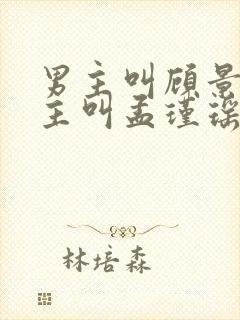 男主叫顾景
主叫孟瑾瑶
林培森